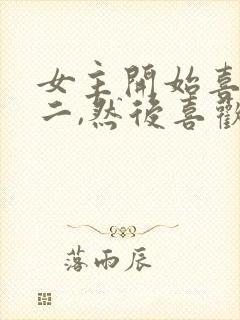 女主開始喜
二,然後喜歡
落雨辰